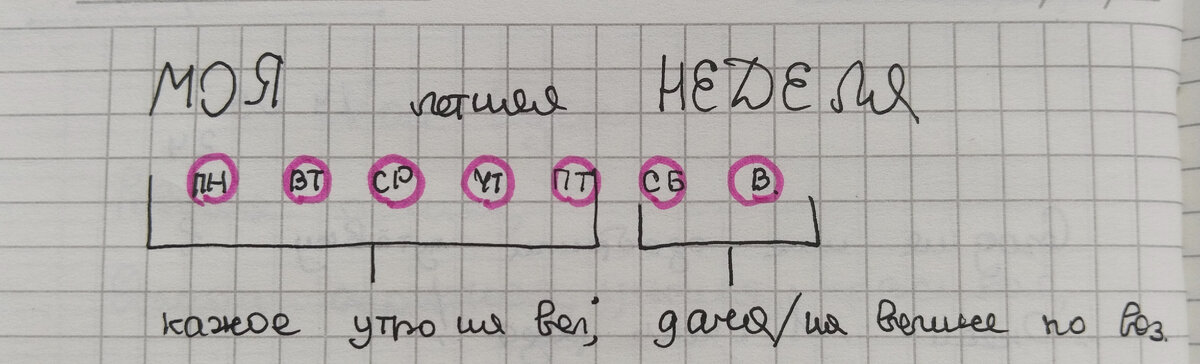 МОЯ летняя НЕДЕЛЯ
ПН ВТ СР ЧТ ПТ СБ В.
каждое утро на вел; дача/на велике по воз.